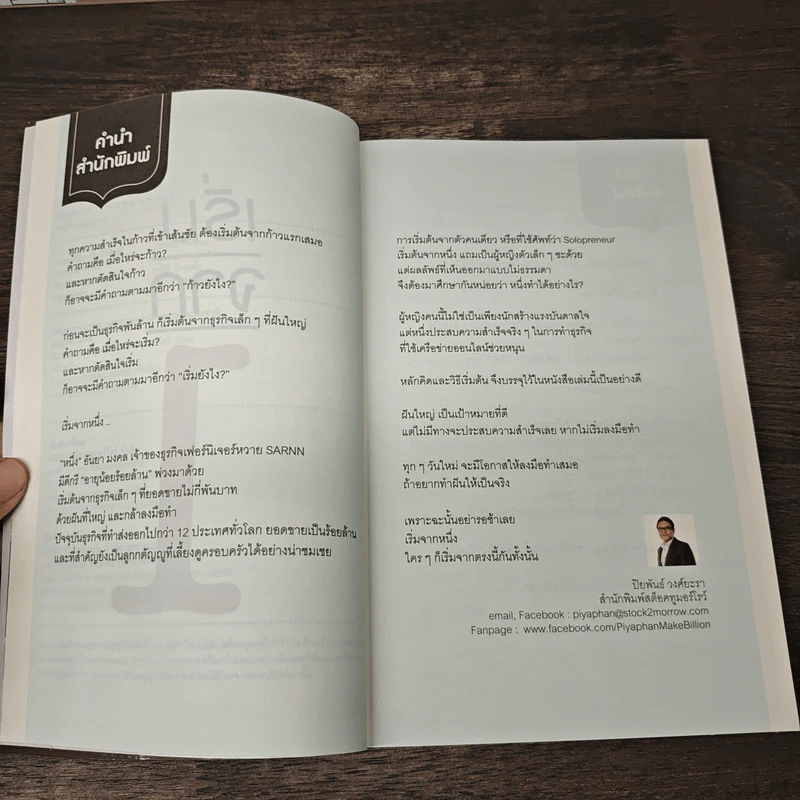 คำนำ
สำนักพิมพ์
ทุกความสำเร็จในก้าวที่เข้าเส้นชัย ต้องเริ่มต้นจากก้าวแรกเสมอ
คำถามคือ เมื่อไหร่จะก้าว?
และหากตัดสินใจก้าว
ก็อาจจะมีคำถามตามมาอีกว่า "ก้าวยังไง?"
ก่อนจะเป็นธุรกิจพันล้าน ก็เริ่มต้นจากธุรกิจเล็ก ๆ ที่ฝันใหญ่
คำถามคือ เมื่อไหร่จะเริ่ม?
และหากตัดสินใจเริ่ม
ก็อาจจะมีคำถามตามมาอีกว่า "เริ่มยังไง?"
เริ่มจากหนึ่ง ..
"หนึ่ง" อันยา มงคล เจ้าของธุรกิจเฟอร์นิเจอร์หวาย SARNN
มีดีกรี "อายุน้อยร้อยล้าน" พ่วงมาด้วย
เริ่มต้นจากธุรกิจเล็ก ๆ ที่ยอดขายไม่กี่พันบาท
ด้วยฝันที่ใหญ่ และกล้าลงมือทำ
ปัจจุบันธุรกิจที่ทำส่งออกไปกว่า 12 ประเทศทั่วโลก ยอดขายเป็นร้อยล้าน
และที่สำคัญยังเป็นลูกกตัญญูที่เลี้ยงดูครอบครัวได้อย่างน่าชมเชย
การเริ่มต้นจากตัวคนเดียว หรือที่ใช้ศัพท์ว่า Solopreneur
เริ่มต้นจากหนึ่ง แถมเป็นผู้หญิงตัวเล็ก ๆ ซะด้วย
แต่ผลลัพธ์ที่เห็นออกมาแบบไม่ธรรมดา
จึงต้องมาศึกษากันหน่อยว่า หนึ่งทำได้อย่างไร?
ผู้หญิงคนนี้ไม่ใช่เป็นเพียงนักสร้างแรงบันดาลใจ
แต่หนึ่งประสบความสำเร็จจริง ๆ ในการทำธุรกิจ
ที่ใช้เครือข่ายออนไลน์ช่วยหนุน
หลักคิดและวิธีเริ่มต้น จึงบรรจุไว้ในหนังสือเล่มนี้เป็นอย่างดี
ฝันใหญ่ เป็นเป้าหมายที่ดี
แต่ไม่มีทางจะประสบความสำเร็จเลย หากไม่เริ่มลงมือทำ
ทุก ๆ วันใหม่ จะมีโอกาสให้ลงมือทำเสมอ
ถ้าอยากทำฝันให้เป็นจริง
เพราะฉะนั้นอย่ารอช้าเลย
เริ่มจากหนึ่ง
ใคร ๆ ก็เริ่มจากตรงนี้กันทั้งนั้น
ปิยพันธ์ วงศ์ยะรา
สำนักพิมพ์สต็อคทูมอร์โรว์
email, Facebook : piyaphan@stock2morrow.com
Fanpage : www.facebook.com/PiyaphanMakeBillion